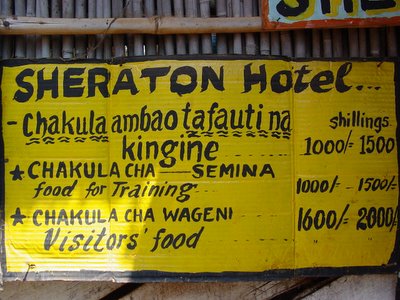 SHE
SHERATON Hotel...
- Chakula ambao tafauti na shillings
kingine ---- 1000/= 1500
★ CHAKULA CHA SEMINA
food for Training --- 1000/- - 1500/-
★ CHAKULA CHA WAGENI --- 1600/= 2000/.
Visitors' food